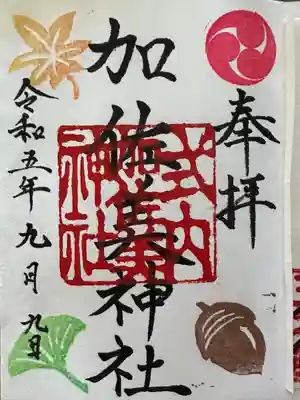 奉拝
加佐美神社
式内
神社
令和五年九月九日